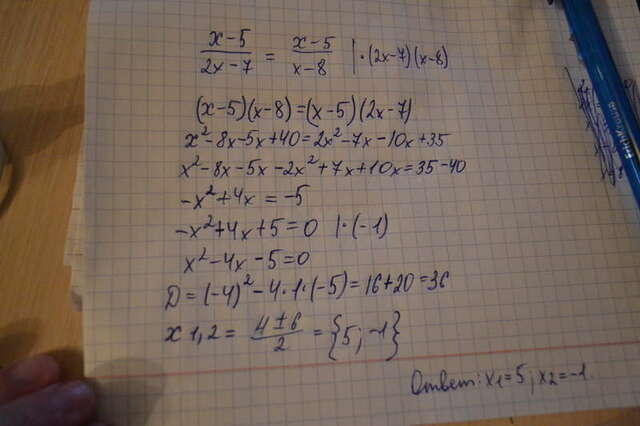 x-5/2x-7 = x-5/x-8 | ·(2x-7)(x-8)
(x-5)(x-8)=(x-5)(2x-7)
x²-8x-5x+40=2x²-7x-10x+35
x²-8x-5x-2x²+7x+10x=35-40
-x²+4x=-5
-x²+4x+5=0 |·(-1)
x²-4x-5=0
D=(-4)²-4·1·(-5)=16+20=36
x1,2=4±6/2={5;-1}
Ответ: x1=5; x2=-1.